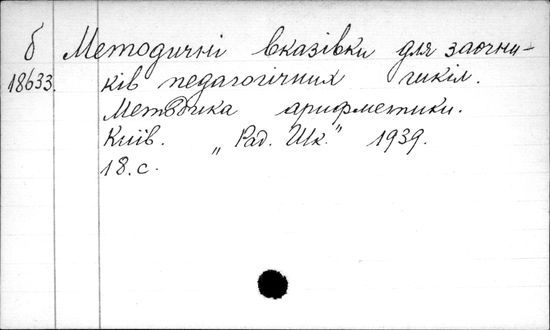 б Методичні вказівки для заочни-
18633. ків педагогічних шкіл.
Методика арифметики.
Київ. „Рад. Шк." 1939.
18.с.